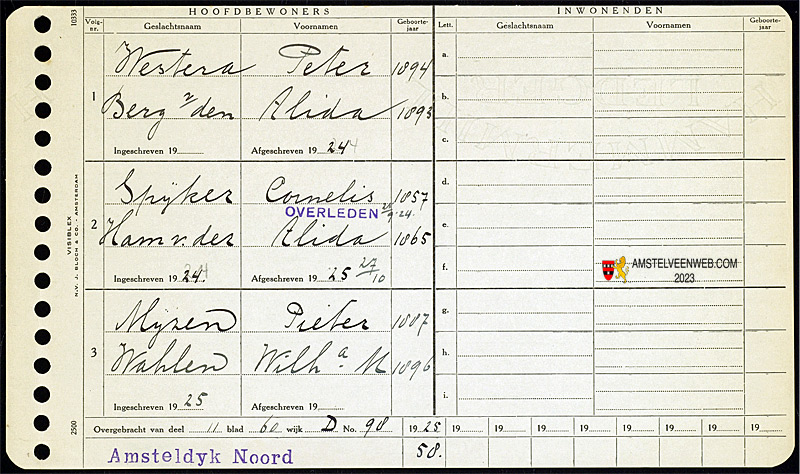 HOOFDBEWONERS INWONENDEN
Volg-nr. Geslachtsnaam Voornamen Geboorte-jaar Lett. Geslachtsnaam Voornamen Geboorte-jaar
10333
1
Westera Peter 1894
Berg v den Alida 1893
Ingeschreven 19 Afgeschreven 19 24
2
Spijker Cornelis 1857
OVERLEDEN 9.24.
Ham v der Alida 1865
Ingeschreven 19 24. Afgeschreven 19 25 27/10
3
Mijzen Pieter 1887
Wahlen Wilh a. M 1896
Ingeschreven 19 25 Afgeschreven 19
a.
b.
c.
d.
e.
f.
g.
h.
i.
AMSTELVEENWEB.COM
2023
VISIBLEX
N.V. J. BLOCH & CO. - AMSTERDAM
2500
Overgebracht van deel 11 blad 60 wijk D No. 98 19 25 19 19 19 19 19 19 19 19
Amsteldyk Noord 58.